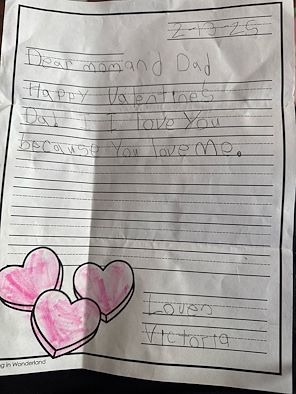 2-13-25
Dear mom and Dad
Happy Valentines
Dat I love You
because You love Me.
Loven
Victoria
g in Wonderland